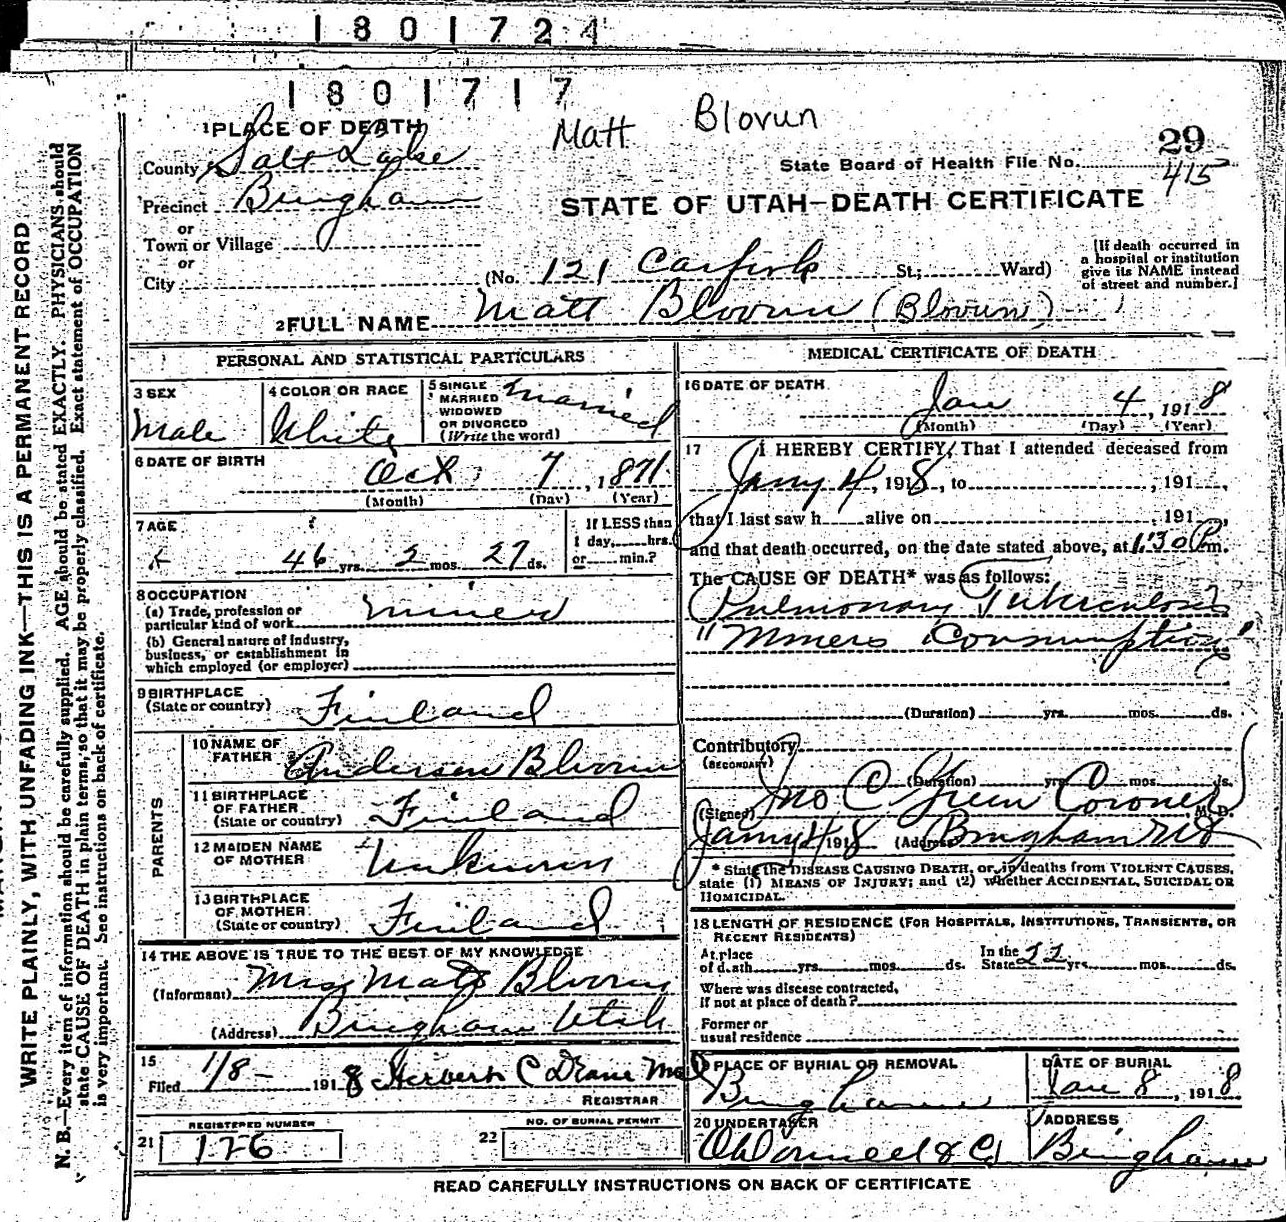 1801724
1801717
Matt Blovun
1 PLACE OF DEATH
29
County Salt Lake
State Board of Health File No. 415
Precinct Bingham
STATE OF UTAH—DEATH CERTIFICATE
or
Town or Village
or
City
(No. 121 Carfork St; Ward)
[If death occurred in
a hospital or institution
give its NAME instead
of street and number.]
2 FULL NAME Matt Blovun (Blovun)
PERSONAL AND STATISTICAL PARTICULARS
3 SEX
Male
4 COLOR OR RACE
White
5 SINGLE
MARRIED
WIDOWED
OR DIVORCED
(Write the word)
Married
6 DATE OF BIRTH
Oct 7, 1871
(Month) (Day) (Year)
7 AGE
46 yrs. 2 mos. 27 ds.
If LESS than
1 day, hrs.
or min.?
8 OCCUPATION
(a) Trade, profession or
particular kind of work Miner
(b) General nature of Industry,
business, or establishment in
which employed (or employer)
9 BIRTHPLACE
(State or country) Finland
PARENTS
10 NAME OF
FATHER Anderson Blovun
11 BIRTHPLACE
OF FATHER
(State or country) Finland
12 MAIDEN NAME
OF MOTHER Unknown
13 BIRTHPLACE
OF MOTHER
(State or country) Finland
14 THE ABOVE IS TRUE TO THE BEST OF MY KNOWLEDGE
(Informant) Mrs Matt Blovun
(Address) Bingham Utah
15
Filed 1/8- 1918 Herbert C
REGISTRAR
REGISTERED NUMBER
21 126
NO. OF BURIAL PERMIT
22
MEDICAL CERTIFICATE OF DEATH
16 DATE OF DEATH
Jan 4, 1918
(Month) (Day) (Year)
17 I HEREBY CERTIFY, That I attended deceased from
Jany 4, 1918, to , 191 ,
that I last saw h alive on , 191
and that death occurred, on the date stated above, at 1:30 P m.
The CAUSE OF DEATH* was as follows:
Pulmonary Tuberculosis
"Miners Consumption"
(Duration) yrs. mos. ds.
Contributory
(SECONDARY)
(Duration) yrs. mos. ds.
(Signed) Jno C Green Coroner M. D.
Jany 4 1918 (Address) Bingham
* State the DISEASE CAUSING DEATH, or, in deaths from VIOLENT CAUSES,
state (1) MEANS OF INJURY; and (2) whether ACCIDENTAL, SUICIDAL OR
HOMICIDAL.
18 LENGTH OF RESIDENCE (FOR HOSPITALS, INSTITUTIONS, TRANSIENTS, OR
RECENT RESIDENTS)
At place
of death yrs. mos. ds.
In the
State 22 yrs. mos. ds.
Where was disease contracted,
if not at place of death?
Former or
usual residence
PLACE OF BURIAL OR REMOVAL
Bingham
DATE OF BURIAL
Jan 8, 1918
20 UNDERTAKER
O'Donnell & Co
ADDRESS
Bingham
READ CAREFULLY INSTRUCTIONS ON BACK OF CERTIFICATE
WRITE PLAINLY, WITH UNFADING INK—THIS IS A PERMANENT RECORD
N. B.—Every item of information should be carefully supplied. AGE should be stated EXACTLY. PHYSICIANS should
state CAUSE OF DEATH in plain terms, so that it may be properly classified. Exact statement of OCCUPATION
is very important. See instructions on back of certificate.